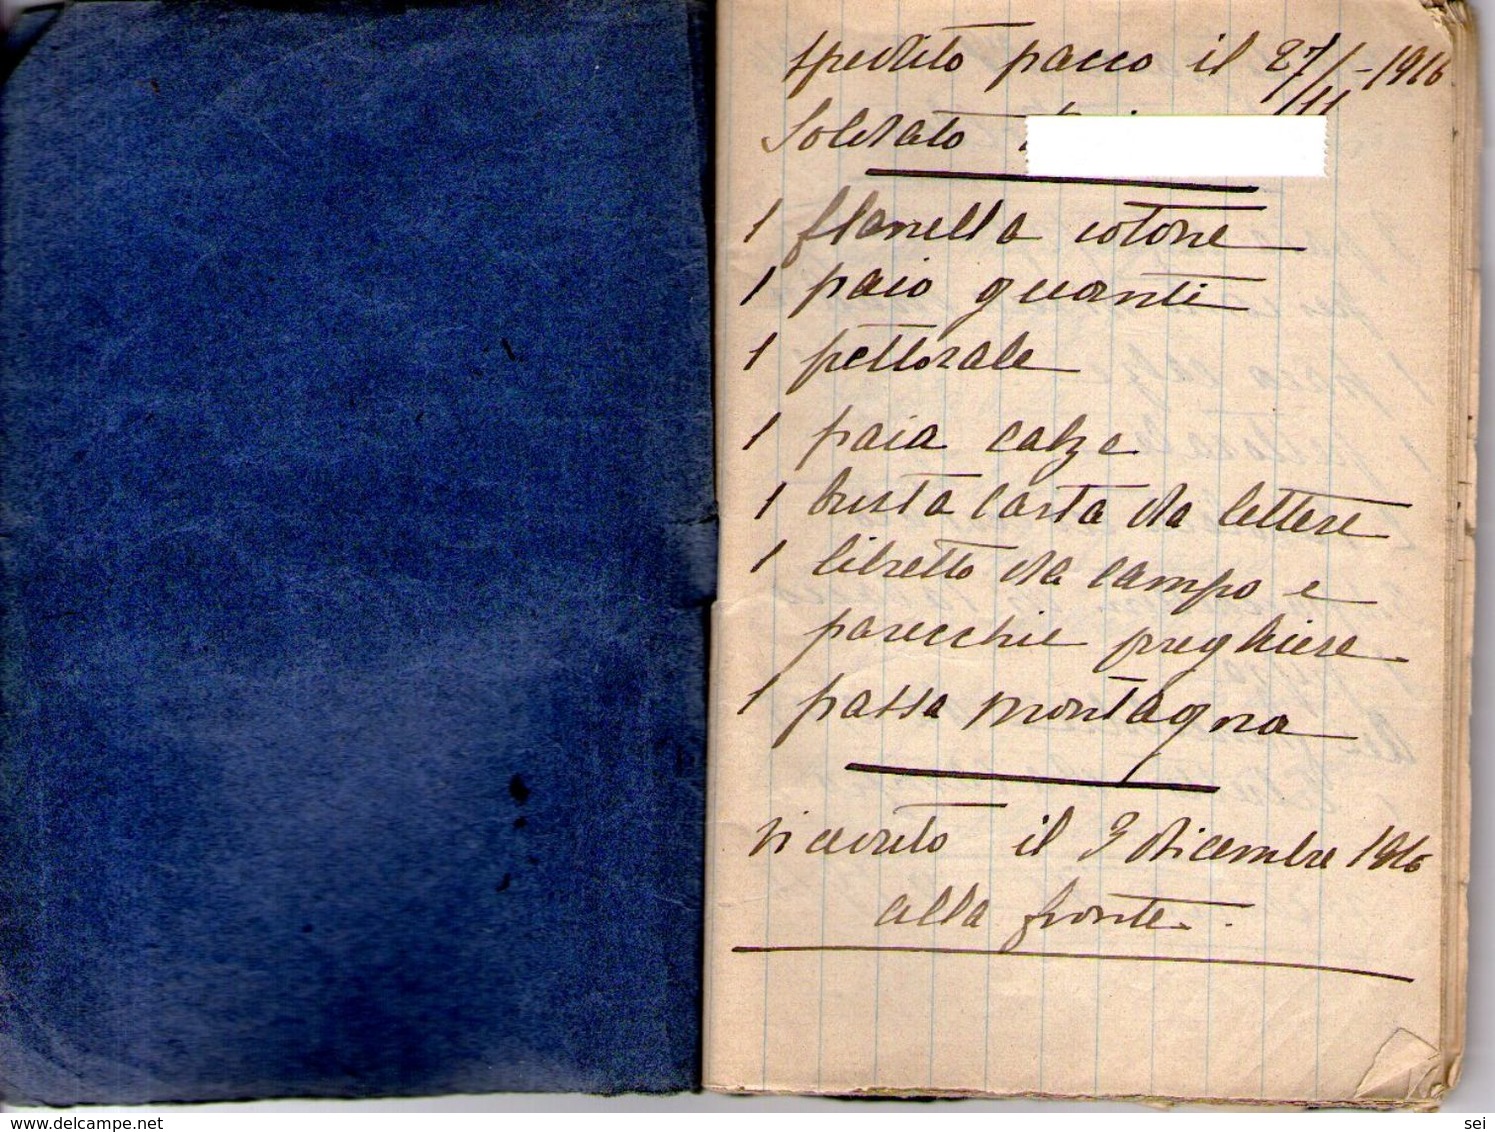 spedito pacco il 27/11-1916
Soldato
1 flanella cotone
1 paio guanti
1 pettorale
1 paia calze
1 busta carta da lettere
1 libretto da campo e
parecchie preghiere
1 passa montagna
ricevuto il 3 dicembre 1916
alla fronte.
www.delcampe.net
sei